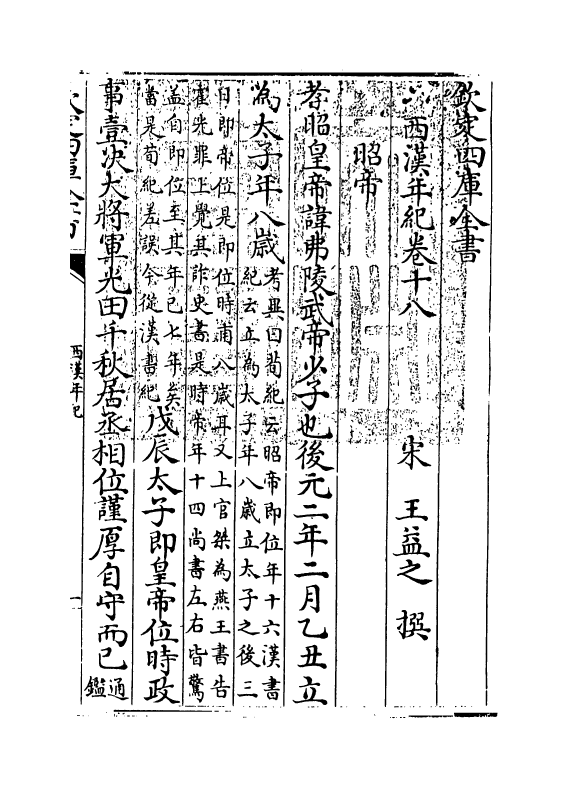 欽定四庫全書
西漢年紀卷十八 宋 王益之 撰
昭帝
孝昭皇帝諱弗陵武帝少子也後元二年二月乙丑立
為太子年八歲考異曰荀紀云昭帝即位年十六漢書
紀云立為太子年八歲立太子之後三
日即帝位是即位時甫八歲耳又上官桀為燕王書告
霍光罪上覺其詐史書是時帝年十四尚書左右皆驚
蓋自即位至其年已七年矣
當是荀紀差誤今從漢書紀戊辰太子即皇帝位時政
事壹決大將軍光田千秋居丞相位謹厚自守而已通鑑
西漢年紀
一